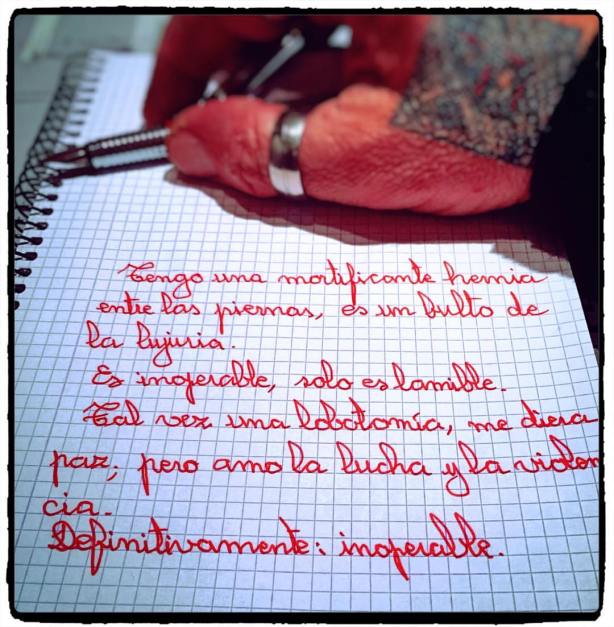 Tengo una mortificante hernia
entre las piernas, es un bulto de
la lujuria.
Es inoperable, solo es lamible.
Tal vez una lobotomía, me diera
paz; pero amo la lucha y la violen
cia.
Definitivamente: inoperable.